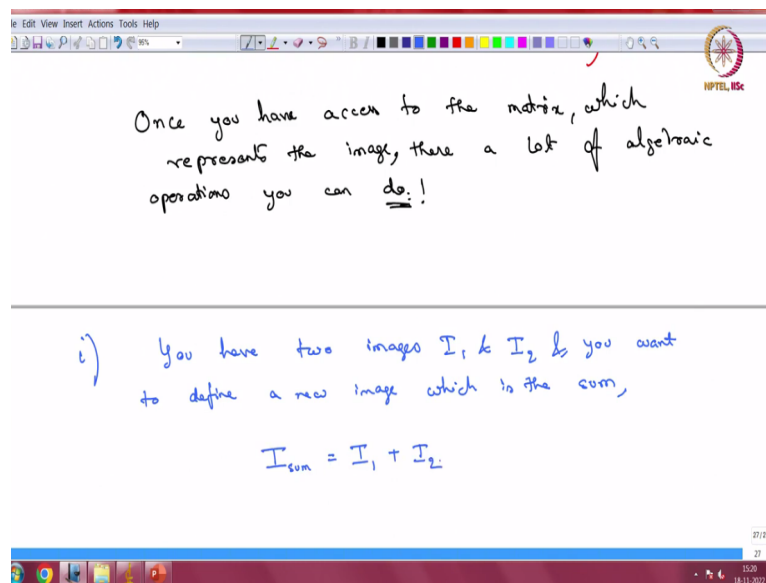 le Edit View Insert Actions Tools Help
95%
NPTEL, IISc
Once you have access to the matrix, which
represents the image, there a lot of algebraic
operations you can do.!
i) You have two images I₁ & I₂ & you want
to define a new image which is the sum,
I sum = I₁ + I₂.
27/2
27
15:20
18-11-202